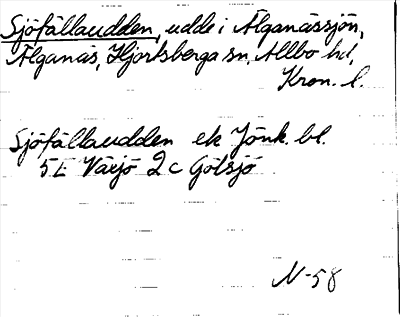 Sjöfällaudden, udde i Älganässjön,
Älganäs, Hjortsberga sn, Allbo hd,
Kron. l.
Sjöfällaudden ek Jönk. bl.
5E Växjö 2c Götsjö
N-58